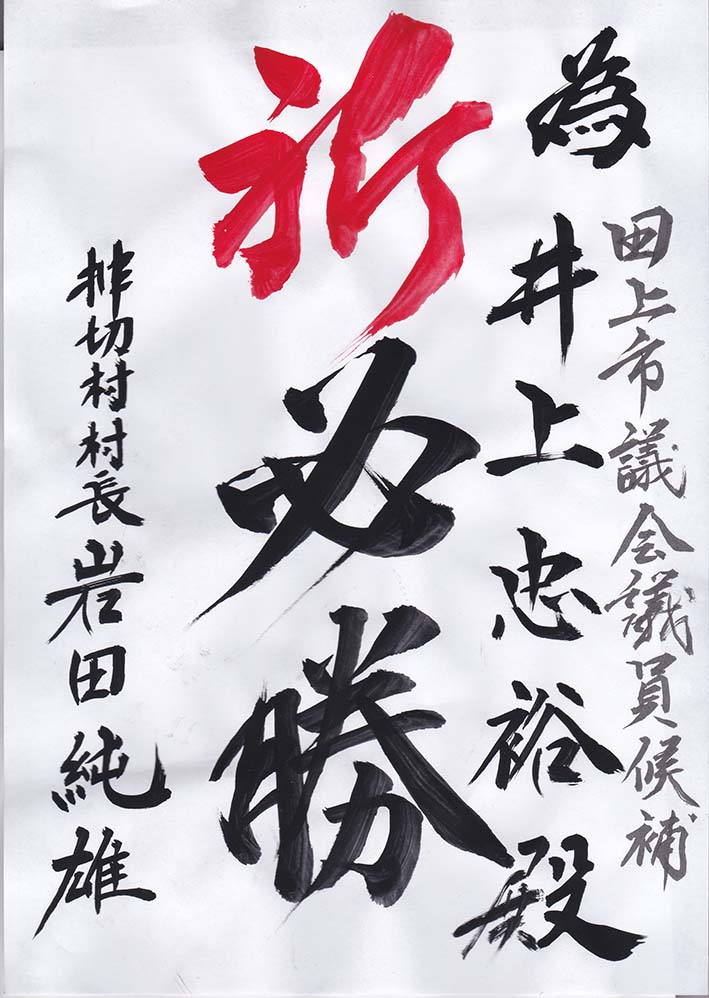 為
田上市議会議員候補
井上忠裕殿
祈
必勝
押切村村長 岩田純雄